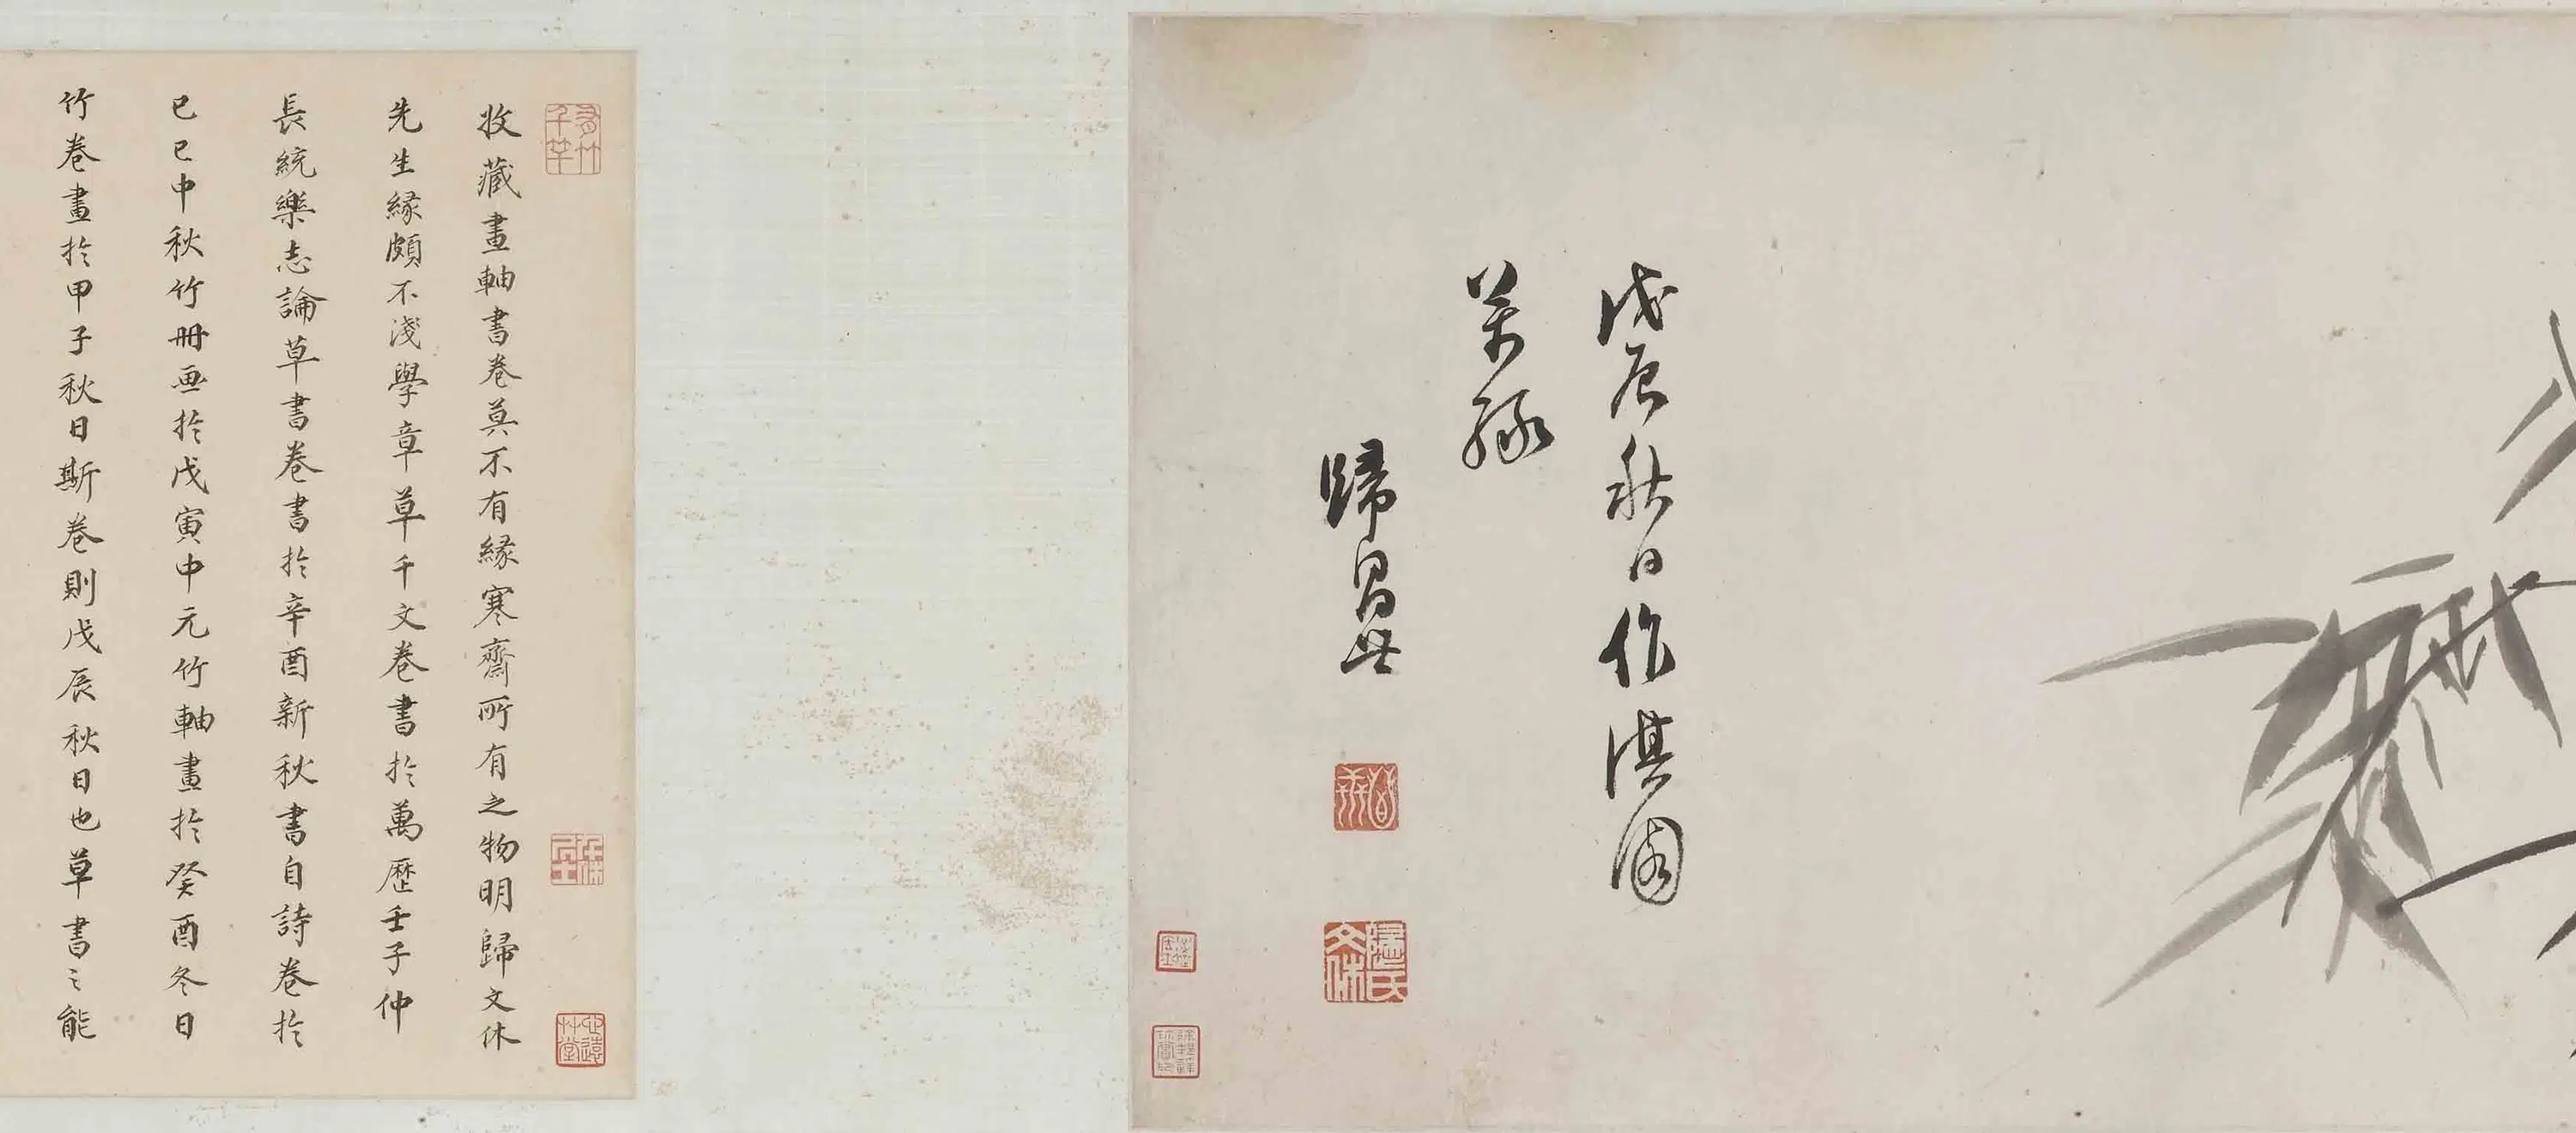 戊辰秋日作淇園
萬綠
歸昌世
歸氏文休
收藏畫軸書卷莫不有緣寒齋所有之物明歸文休
先生緣頗不淺學章草千文卷書於萬歷壬子仲
長統樂志論草書卷書於辛酉新秋書自詩卷於
己巳中秋竹冊畫於戊寅中元竹軸畫於癸酉冬日
竹卷畫於甲子秋日斯卷則戊辰秋日也草書之能